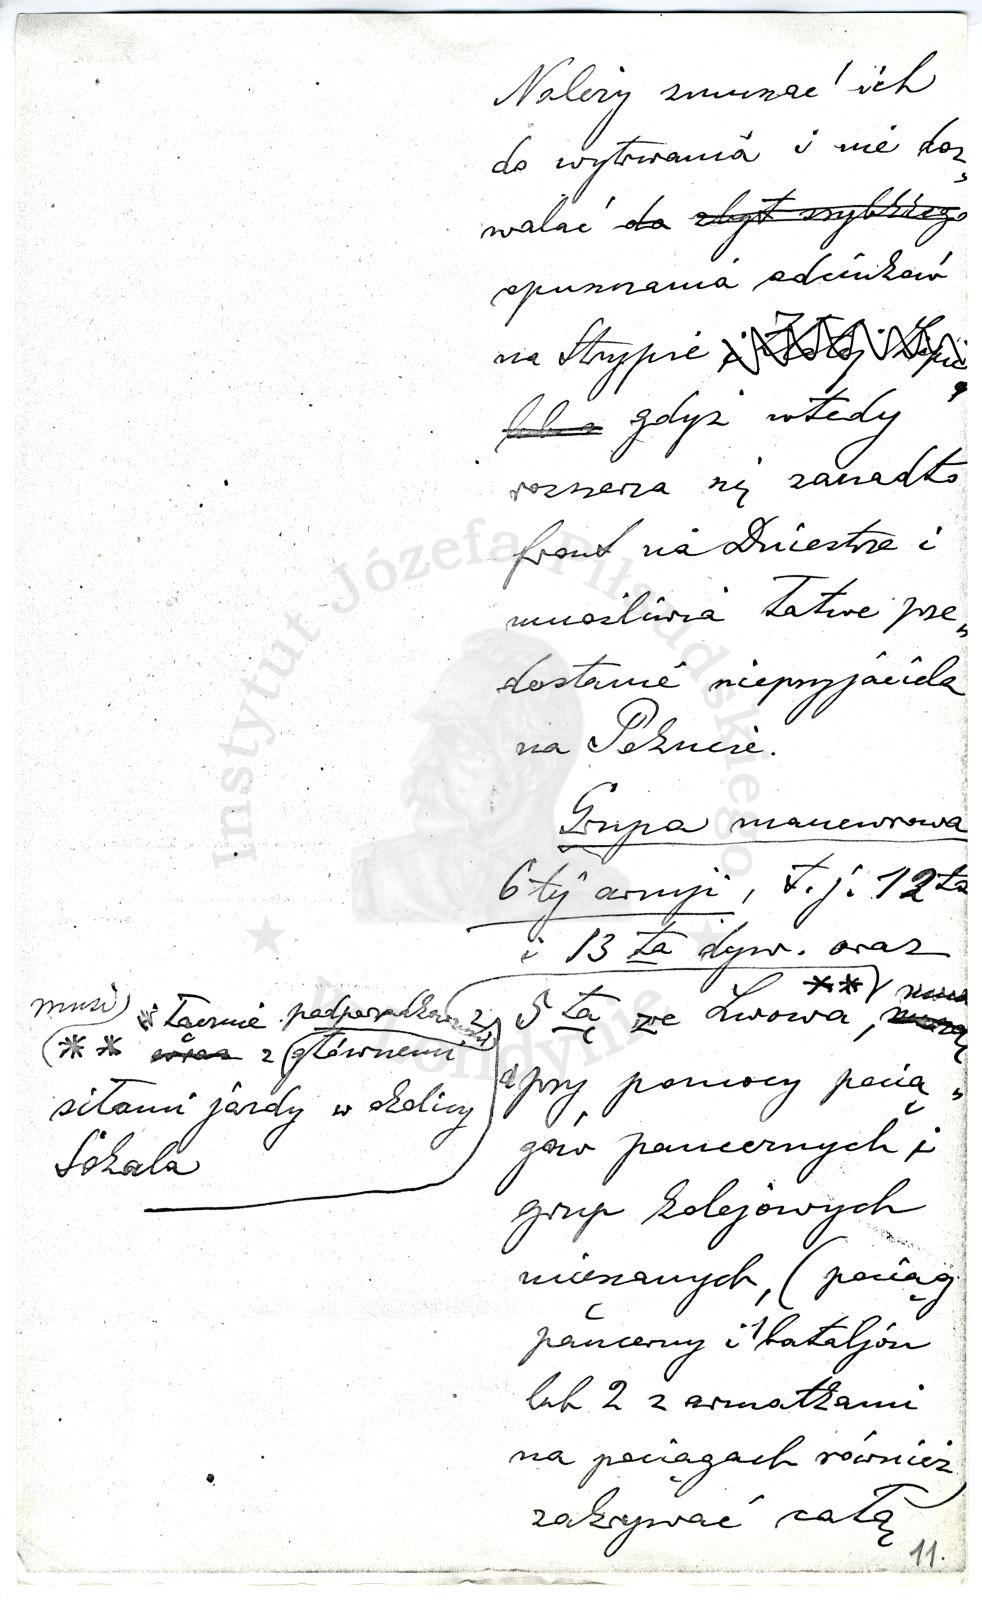 Należy zmuszać ich
do wytrwania i nie doz„
walać do zbyt szybkiego
opuszczania odcinków
na Strypie i Złotej Lipie,
lub z gdyż wtedy
rozszerza się zanadto
front na Dniestrze i
umożliwia łatwe prze„
dostanie nieprzyjaciela
na Pokucie.
Grupa manewrowa
6tej armji, t.j. 12ta
i 13ta dyw. oraz
5tą ze Lwowa, ** muszą
przy pomocy pocią„
gów pancernych i
grup kolejowych
mieszanych, (pociąg
pancerny i 1 bataljon
lub 2 z armatkami
na pociągach również)
zakrywać całą
musi
** łącznie
wraz z głównemi
siłami jazdy w okolicy
Sokala
11.
Instytut Józefa Piłsudskiego
w Londynie